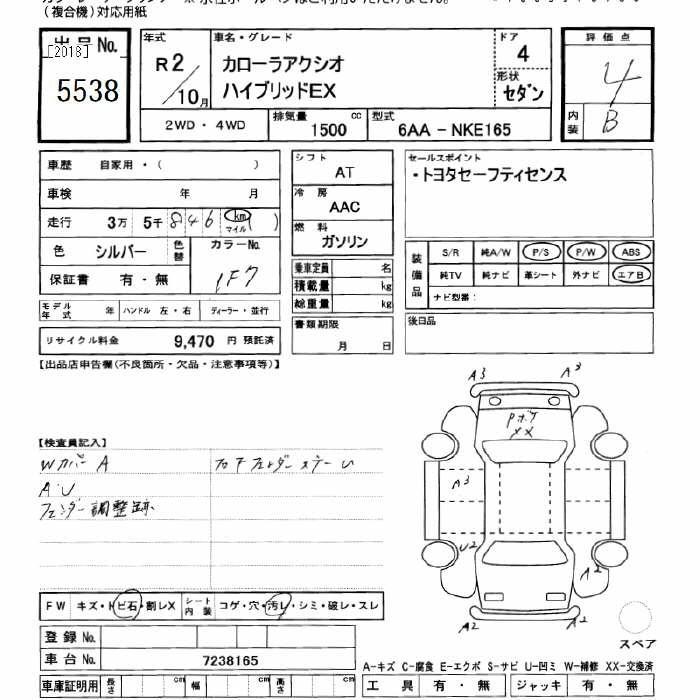 （複合機）対応用紙
出品No.
[2018]
5538
年式
R2/10月
車名・グレード
カローラアクシオ
ハイブリッドEX
ドア
4
形状
セダン
評価点
4
内装
B
2WD・4WD
排気量
1500 cc
型式
6AA－NKE165
車歴 自家用・（ ）
車検 年 月
走行 3万 5千 846 (km マイル)
色 シルバー 色替
カラーNo.
1F7
保証書 有・無
モデル年式 年 ハンドル 左・右 ディーラー・並行
リサイクル料金 9,470 円 預託済
シフト
AT
冷房
AAC
燃料
ガソリン
乗車定員 名
積載量 kg
総重量 kg
書類期限
月 日
セールスポイント
・トヨタセーフティセンス
装備品
S/R 純A/W P/S P/W ABS
純TV 純ナビ 革シート 外ナビ エアB
ナビ型番：
後日品
【出品店申告欄(不良箇所・欠品・注意事項等)】
【検査員記入】
Wカバー A
A・U
フェンダー調整跡
A3
A3
Pボケ
XX
A3
U2
A2
A2
A2
スペア
FW キズ・トビ石・割レX
シート内装 コゲ・穴・汚レ・シミ・破レ・スレ
登録No.
車台No. 7238165
車庫証明用 長さ cm 幅 cm 高さ cm
A-キズ C-腐食 E-エクボ S-サビ U-凹ミ W-補修 XX-交換済
工具 有・無 ジャッキ 有・無